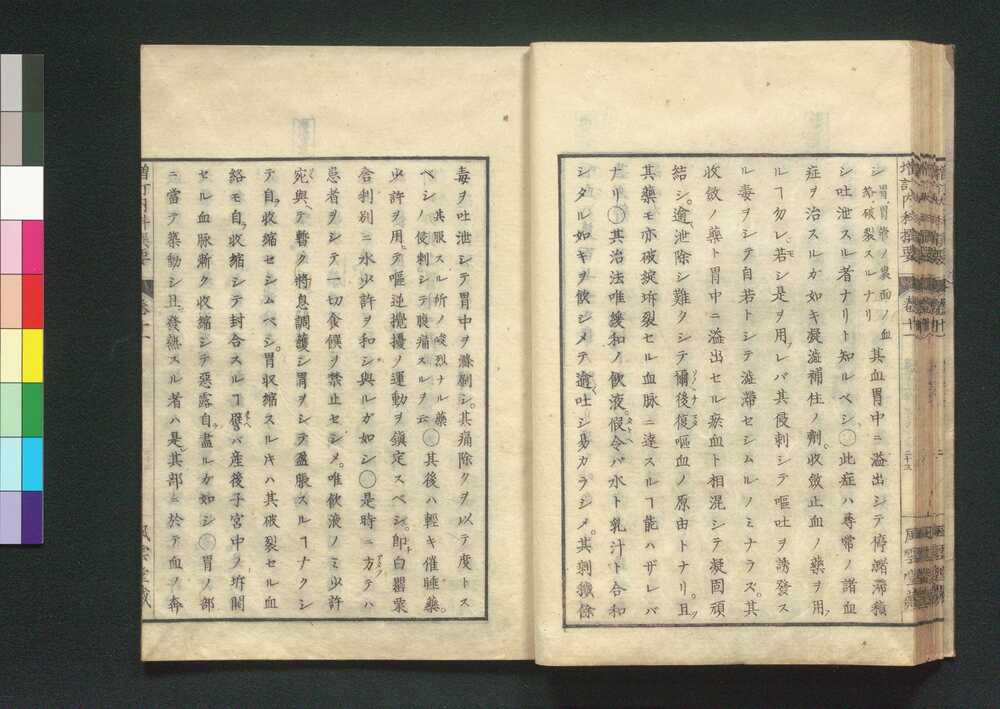 シ 胃、胃管ノ裏面ノ血絡、破裂スルナリ 其血胃中ニ溢出シテ停瀦滞積
シ吐泄スル者ナリト知ルベシ〇此症ハ尋常ノ諸血
症ヲ治スルガ如キ凝澁補住ノ劑。收斂止血ノ藥ヲ用
ルヿ勿レ若シ是ヲ用レバ其侵刺シテ嘔吐ヲ誘發ス
ル妻ヲシテ自若トシテ澁滞セシムルノミナラズ。其
收斂ノ藥ト胃中ニ溢出セル瘀血ト相混シテ凝固頑
結シ。逾泄除シ難クシテ爾後復嘔血ノ原由トナリ。且
其藥モ亦破綻坼裂セル血脈ニ達スルヿ能ハザレバ
ナリ〇其治法唯緩和ノ飲液。假令バ水ト乳汁ト合和
シタル如キヲ飲シメテ逾吐シ易カラシメ。其刺戟餘
毒ヲ吐泄シテ胃中ヲ滌刷シ。其痛除クヲ以テ度トス
ベシ 其服スル所ノ峻烈ナル藥ノ侵刺シテ腹痛スルヲ云 〇其後ハ輕キ催睡藥。
少許ヲ用テ嘔逆攪擾ノ運動ヲ鎭定スベシ。即白罌粟
舎利別ニ水少許ヲ和シ與ルガ如シ〇是時ニ方テハ
患者ヲシテ一切食餌ヲ禁止セシメ。唯飲液ノミ少許
宛與ヘテ暫ク將息調護シ胃ヲシテ盈脹スルヿナクシ
テ自收縮セシムベシ。胃収縮スルキハ其破裂セル血
絡モ自收縮シテ封合スルヿ譬バ産後子宮中ノ坼開
セル血脈漸ク收縮シテ惡露自盡ルガ如シ〇胃ノ部
ニ當テ築動シ且發熱スル者ハ是。其部ニ於テ血ノ奔